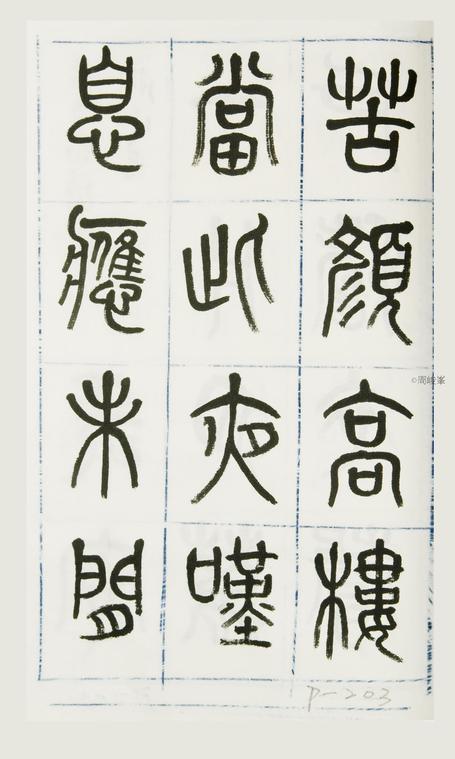 苦顏高樓
當此夜嘆
息應未閒
P-203
©周峻峯